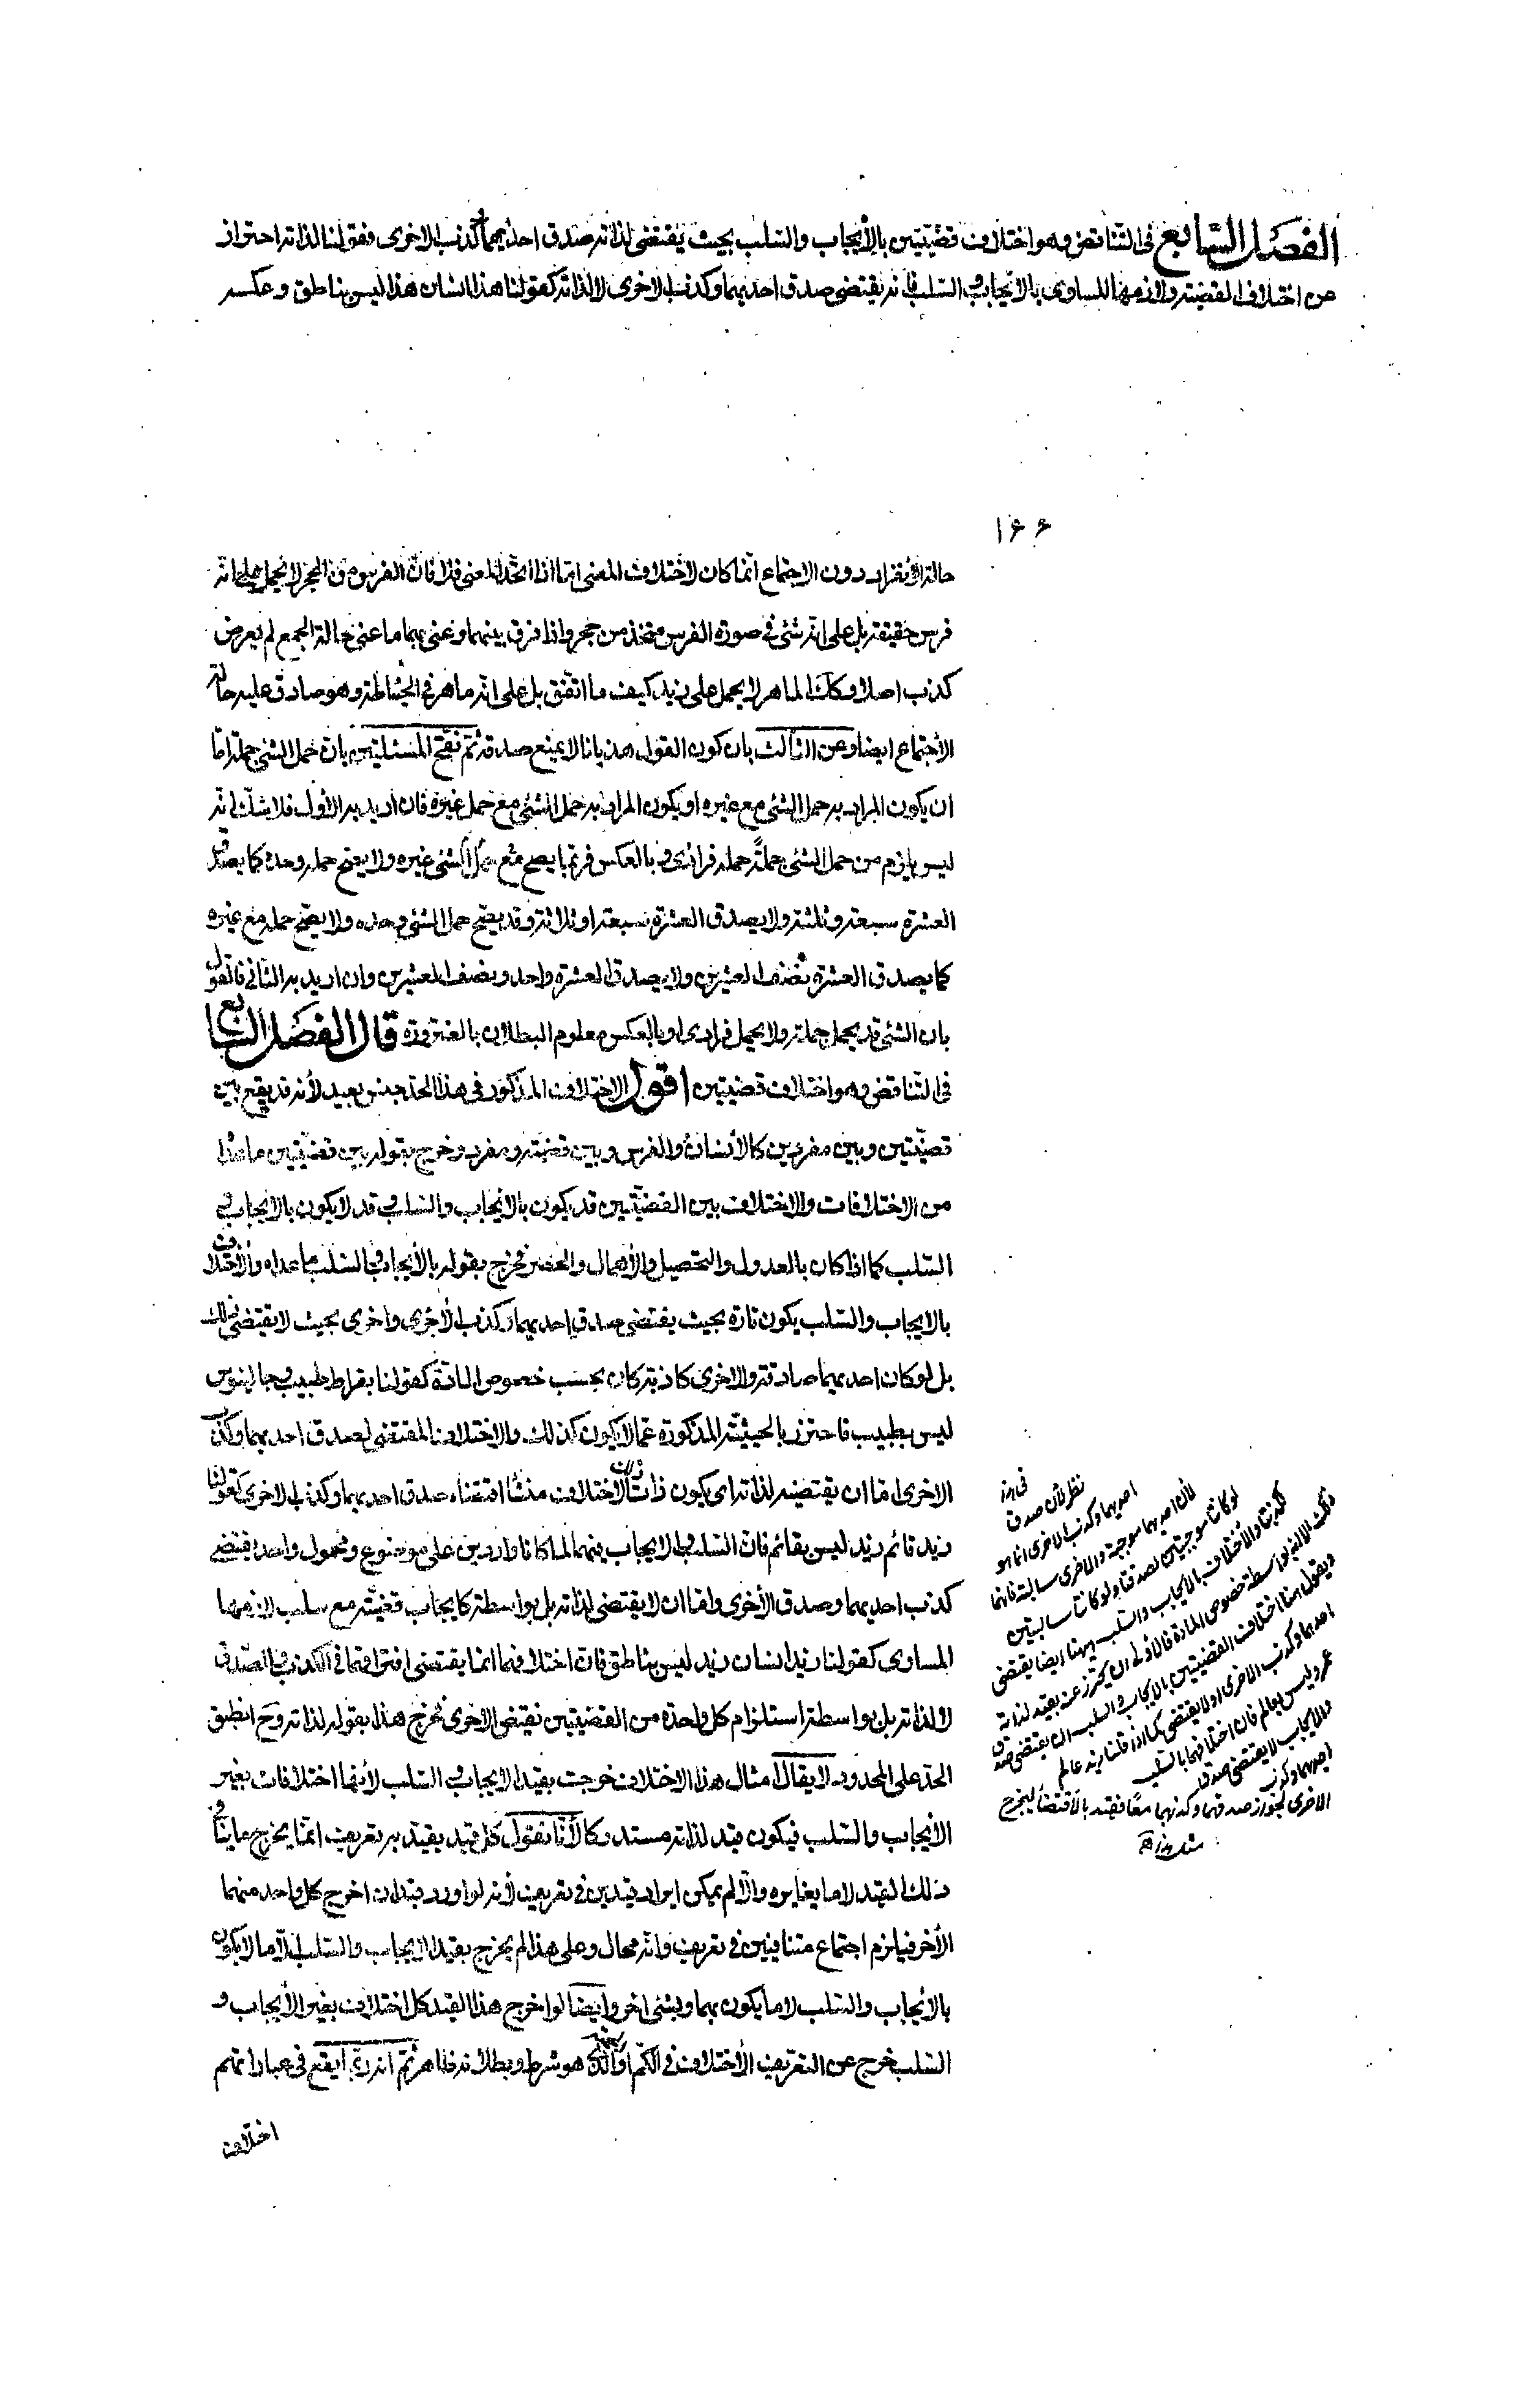 الفصل السابع فى التناقض وهو اختلاف قضيتين بالأيجاب والسلب بحيث يقتضى لذاته صدق احديهما كذب الاخرى فقولنا لذاته احتراز
عن اختلاف القضيته ولازمها المساوى بالايجاب و السلب فانه يقتضى صدق احديهما وكذب الاخرى لا لذاته كقولنا هذا انسان هذا ليس بناطق وعكسه
۱۶۶
حالة الأنفراد دون الاجتماع انما كان لأختلاف المعنى اما اذا اتحد المعنى فلا فان الفرس من الحجر لا يحمل عليه انه
فرس حقيقة بل على انه شئ فى صورة الفرس متخذ من حجر واذا فرق بينهما وعنى بهما ما عنى حالة الجمع لم يعرض
كذب اصلا وكذلك الماهر لا يحمل على زيد كيف ما اتفق بل على انه ماهر فى الخياطة وهو صادق عليه حالة
الأجتماع ايضا وعن الثالث بان كون القول هذيانا لا يمنع صدقه ثم نقح المسئلتين بان حمل الشئ جملة اما
ان يكون المراد به حمل الشئ مع غيره او يكون المراد به حمل الشئ مع حمل غيره فان اريد به الأول فلا شك انه
ليس يلزم من حمل الشئ جملة حمله فرادى و بالعكس فربما يصح مع حمل الشئ غيره ولا يصح حمله وحده كما يصدق
العشرة سبعة وثلثة ولا يصدق العشرة سبعة او ثلاثة وقد يصح حمل الشئ وحده ولا يصح حمله مع غيره
كما يصدق العشرة نصف العشرين ولا يصدق العشرة واحد ونصف العشرين وان اريد به الثانى فالقول
بان الشئ قد يحمل جملة ولا يحمل فرادى او بالعكس معلوم البطلان بالضرورة قال الفصل السابع
فى التناقض وهو اختلاف قضيتين اقول الاختلاف المذكور فى هذا الحد جنس بعيد لأنه قد يقع بين
قضيتين وبين مفردين كالأنسان والفرس وبين قضية ومفرد وخرج بقوله بين قضيتين ما عدا
من الاختلافات والاختلاف بين القضيتين قد يكون بالايجاب والسلب و قد لا يكون بالايجاب و
السلب كما اذا كان بالعدول والتحصيل والأهمال والحصر فخرج بقوله بالأيجاب و السلب ما عداه والأختلاف
بالايجاب والسلب يكون تارة بحيث يقتضى صدق احديهما وكذب الأخرى واخرى بحيث لا يقتضى ذلك
بل لو كان احديهما صادقة والاخرى كاذبة كان بحسب خصوص المادة كقولنا بقراط طبيب و جالينوس
ليس بطبيب فاحترز بالحيثية المذكورة عما لا يكون كذلك والاختلاف المقتضى لصدق احديهما وكذب
الاخرى اما ان يقتضيه لذاته اى يكون ذات الأختلاف منشأ اقتضاء صدق احديهما وكذب الاخرى كقولنا
زيد قائم زيد ليس بقائم فان السلب و الايجاب بينهما لما كانا واردين على موضوع ومحمول واحد يقتضى
كذب احديهما وصدق الأخرى واما ان لا يقتضى لذاته بل بواسطة كايجاب قضية مع سلب لازمها
المساوى كقولنا زيد انسان زيد ليس بناطق فان اختلافهما انما يقتضى افتراقهما فى الكذب و الصدق
لا لذاته بل بواسطة استلزام كل واحدة من القضيتين نقيض الاخرى فخرج هذا بقوله لذاته وح انطبق
الحد على المحدود لا يقال امثال هذا الاختلاف خرجت بقيد الايجاب و السلب لأنها اختلافات بغير
الأيجاب والسلب فيكون قيد لذاته مستدركا لأنا نقول كل قيد يقيد به تعريف انما يخرج ما ينافى
ذلك القيد لا ما يغايره والا لم يمكن ايراد قيدين فى تعريف لأنه لو اورد قيدان اخرج كل واحد منهما
الأخر فيلزم اجتماع متنافيين فى تعريف وانه محال وعلى هذا لم يخرج بقيد الايجاب والسلب الا ما لا يكون
بالأيجاب والسلب لا ما يكون بهما وبشئ اخر وايضا لو اخرج هذا القيد كل اختلاف بغير الأيجاب و
السلب خرج عن التعريف الأختلاف فى الكم الذى هو شرط وبطلانه ظاهر ثم انه ربما يقع فى عباراتهم
اختلاف
نظر لأن صدق
احديهما وكذب الاخرى انما هو
لأن احديهما موجبة والاخرى سالبة فانهما
لو كانتا موجبتين لصدقتا ولو كانتا سالبتين
لكذبتا والأختلاف بالأيجاب والسلب ههنا ايضا يقتضى
ذلك الا انه بواسطة خصوص المادة فالاولى ان يحترز عنه بقيد لذاته
ويقول هنا اختلاف القضيتين بالايجاب و السلب اما ان يقتضى صدق
احديهما وكذب الاخرى او لا يقتضى كما اذا قلنا زيد عالم
عمرو ليس بعالم فان اختلافهما بالسلب
والايجاب لا يقتضى صدق
احديهما وكذب
الاخرى لجواز صدقهما وكذبهما معا فقيد بالاقتضاء ليخرج
مثل هذا